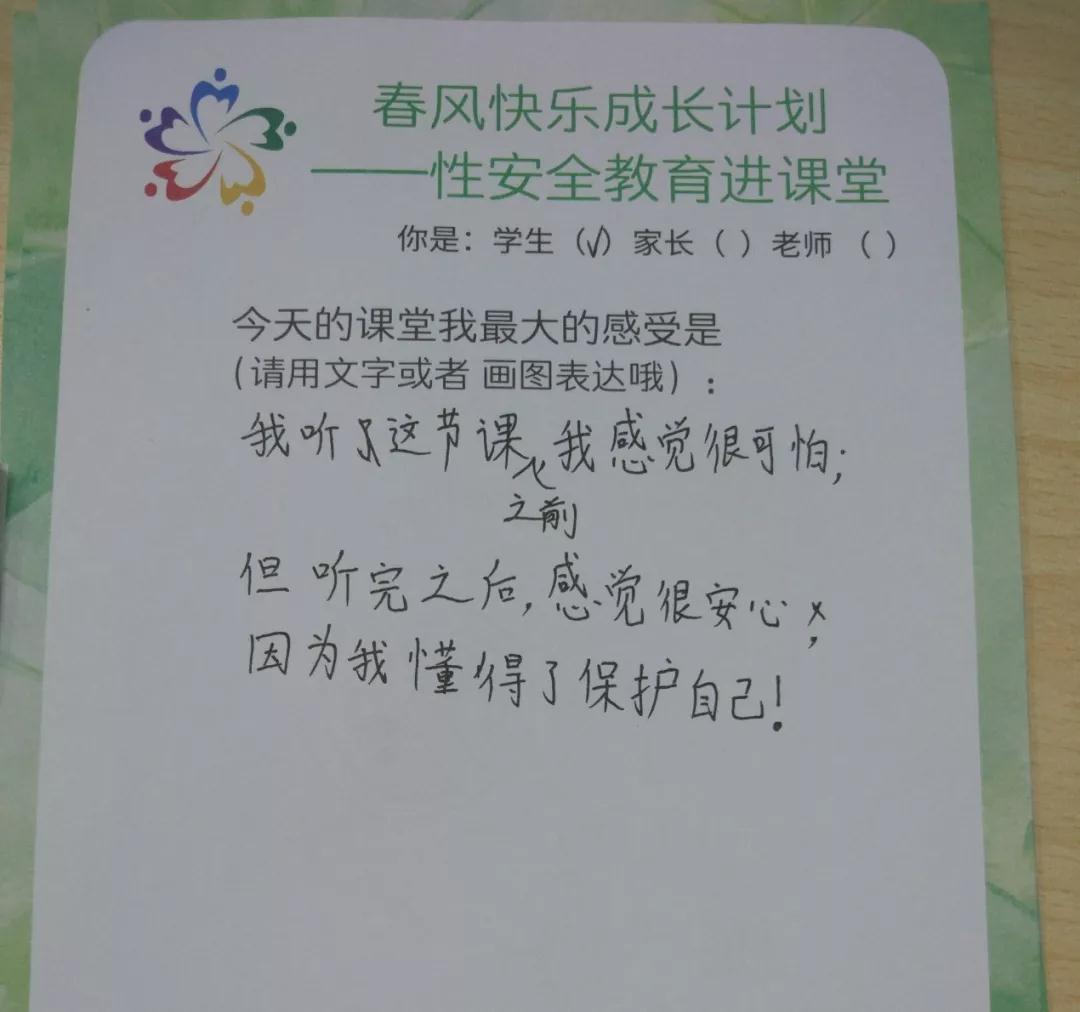 春风快乐成长计划
——性安全教育进课堂
你是：学生（√）家长（ ）老师（ ）
今天的课堂我最大的感受是
（请用文字或者 画图表达哦）：
我听了这节课我感觉很可怕；
之前
但听完之后，感觉很安心，
因为我懂得了保护自己！